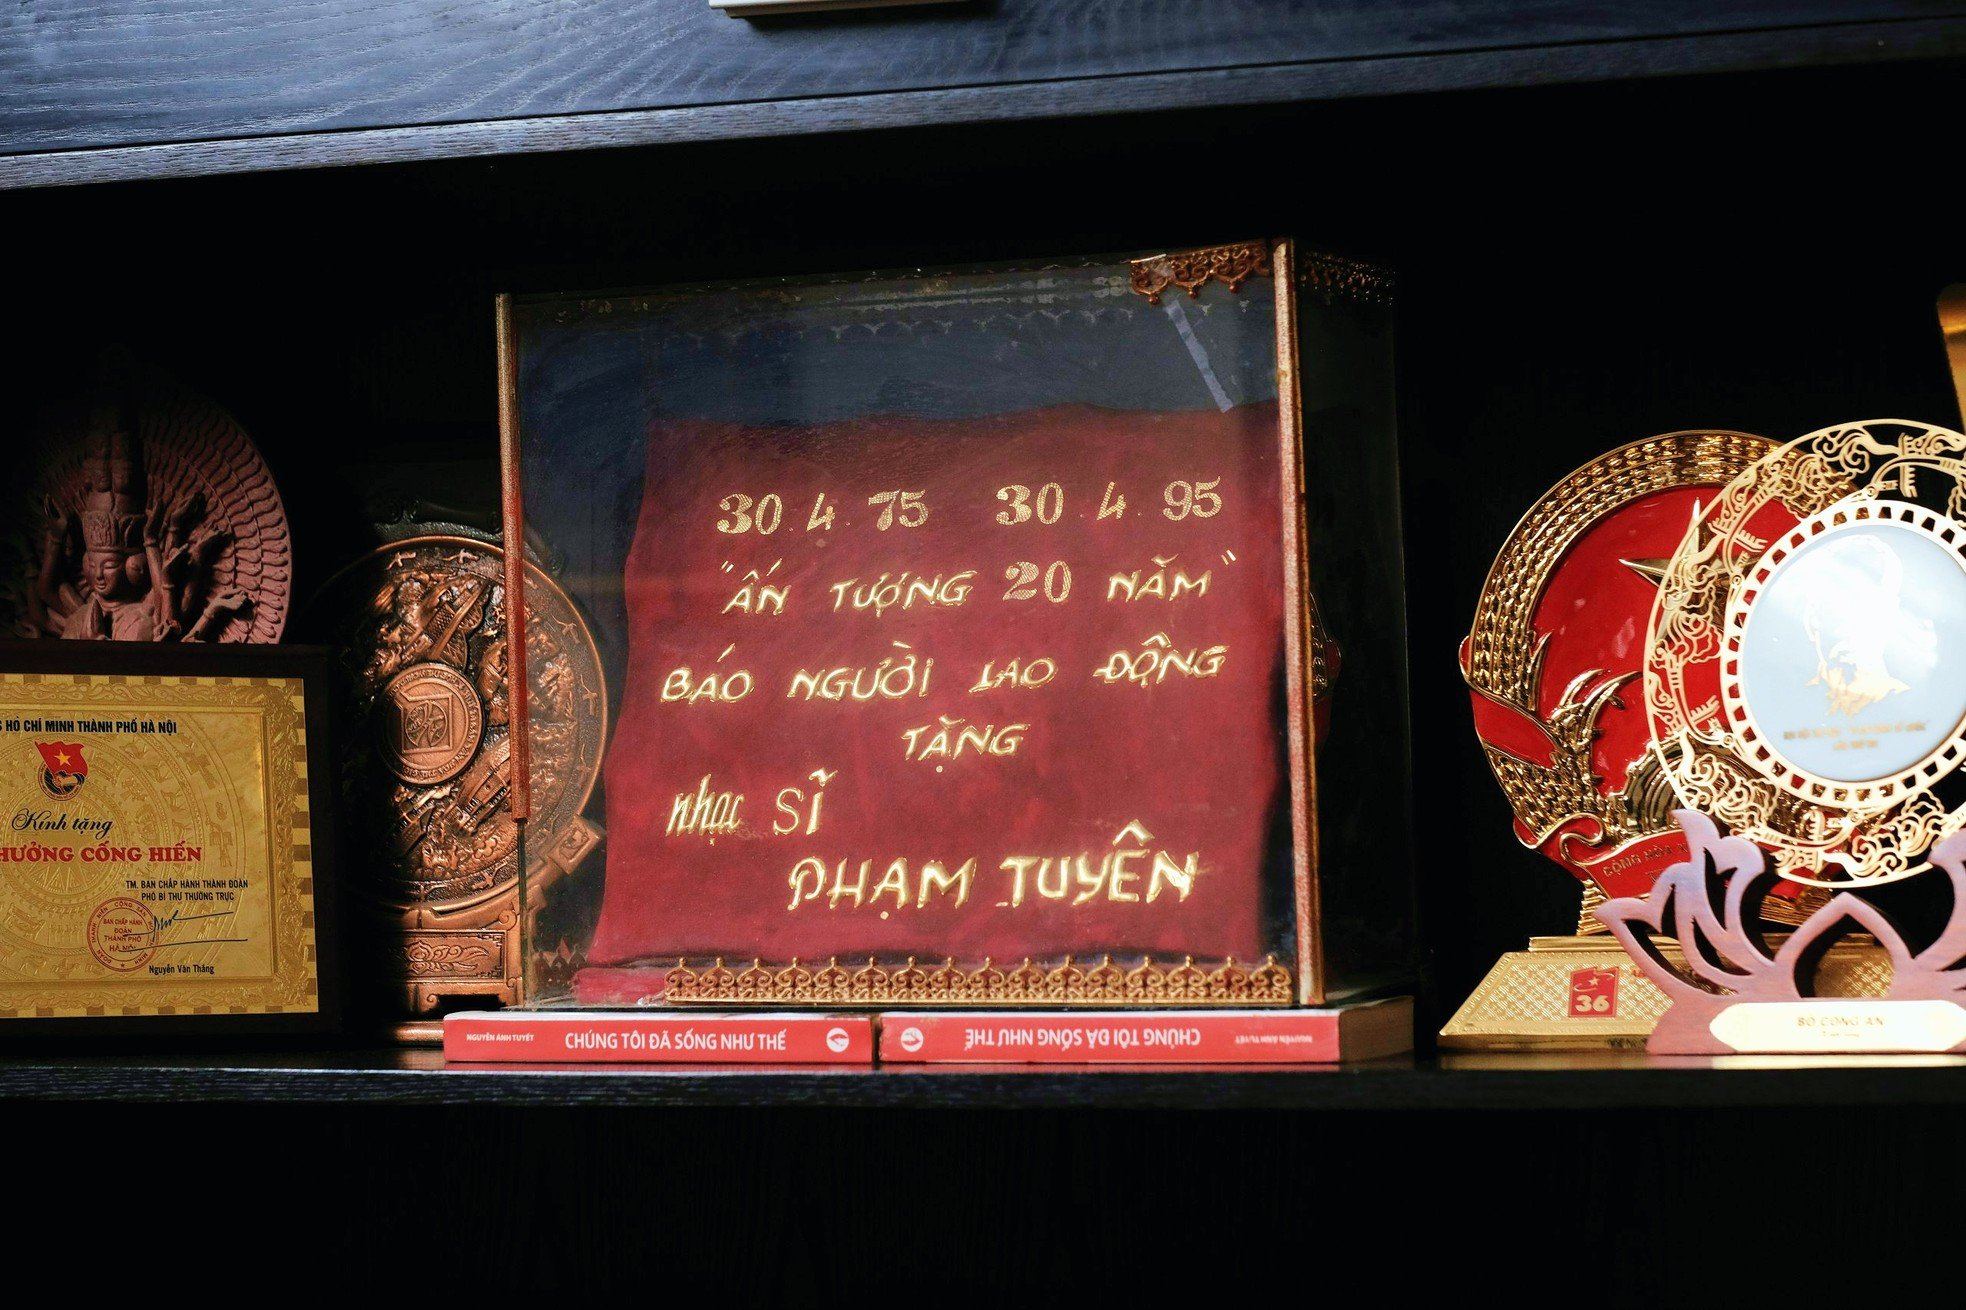 30.4.75 30.4.95
"ẤN TƯỢNG 20 NĂM"
BÁO NGƯỜI LAO ĐỘNG
TẶNG
nhạc sĩ
PHẠM TUYÊN
HỒ CHÍ MINH THÀNH PHỐ HÀ NỘI
Kính tặng
CỐNG HIẾN
TM. BAN CHẤP HÀNH THÀNH ĐOÀN
PHÓ BÍ THƯ THƯỜNG TRỰC
BAN CHẤP HÀNH
ĐOÀN
THÀNH PHỐ
HÀ NỘI
Nguyễn Văn Thắng
NGUYỄN ÁNH TUYẾT CHÚNG TÔI ĐÃ SỐNG NHƯ THẾ
CHÚNG TÔI ĐÃ SỐNG NHƯ THẾ NGUYỄN ÁNH TUYẾT
CỘNG HÒA
36
BỘ CÔNG AN